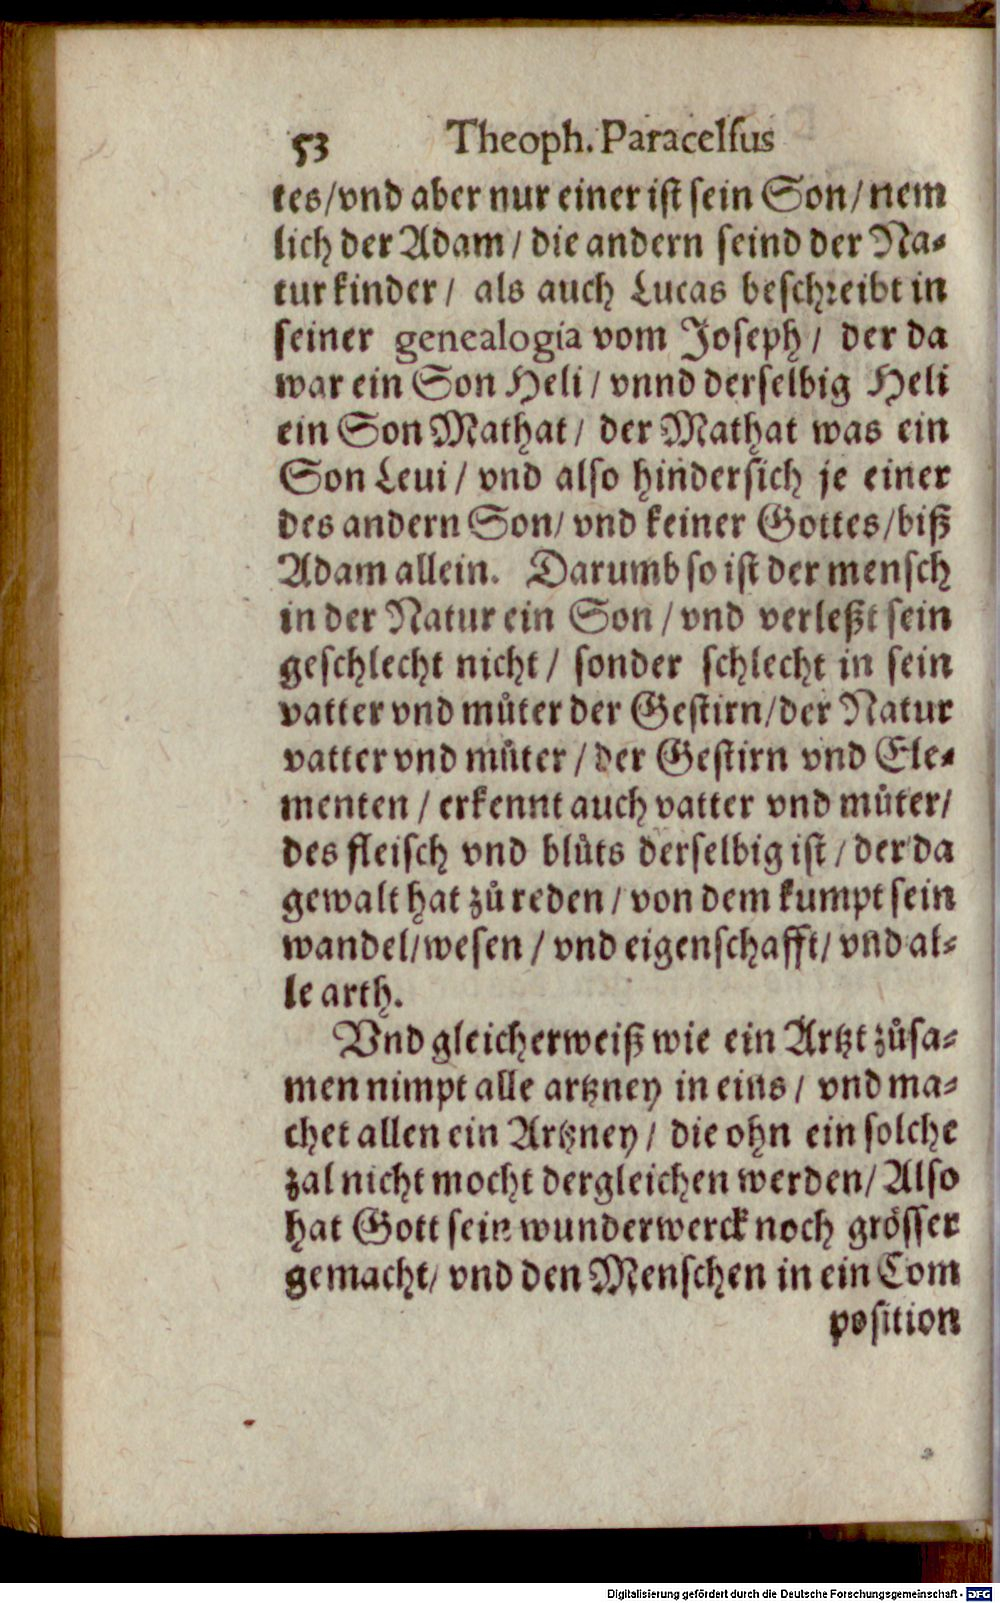 53 Theoph. Paracelsus
tes/vnd aber nur einer ist sein Son/nem
lich der Adam/ die andern seind der Na-
tur kinder/ als auch Lucas beschreibt in
seiner genealogia vom Joseph/ der da
war ein Son Heli/ vnnd derselbig Heli
ein Son Mathat/ der Mathat was ein
Son Leui/ vnd also hindersich je einer
des andern Son/ vnd keiner Gottes/biß
Adam allein. Darumb so ist der mensch
in der Natur ein Son/ vnd verleßt sein
geschlecht nicht/ sonder schlecht in sein
vatter vnd můter der Gestirn/der Natur
vatter vnd můter/ der Gestirn vnd Ele-
menten/ erkennt auch vatter vnd můter/
des fleisch vnd blůts derselbig ist/ der da
gewalt hat zů reden/ von dem kumpt sein
wandel/wesen/ vnd eigenschafft/ vnd al-
le arth.
Vnd gleicherweiß wie ein Artzt zůsa-
men nimpt alle artzney in eins/ vnd ma-
chet allen ein Artzney/ die ohn ein solche
zal nicht mocht dergleichen werden/ Also
hat Gott sein wunderwerck noch grösser
gemacht/ vnd den Menschen in ein Com
position
Digitalisierung gefördert durch die Deutsche Forschungsgemeinschaft - DFG